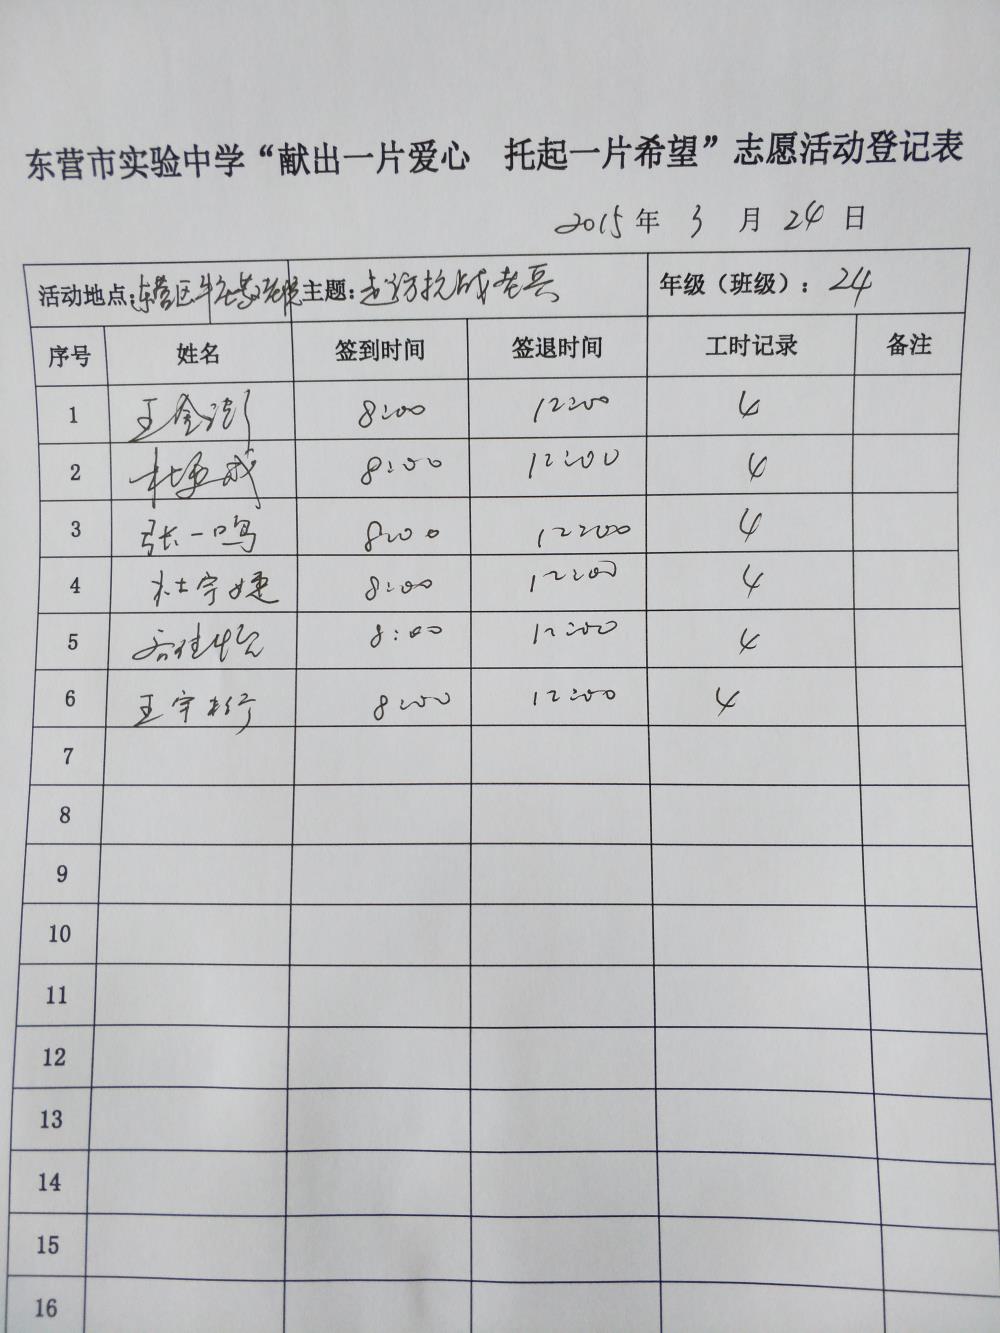 东营市实验中学“献出一片爱心 托起一片希望”志愿活动登记表
2015年 3 月 24 日
活动地点:东营区牛庄敬老院 主题:走访抗战老兵 年级（班级）: 24
序号 姓名 签到时间 签退时间 工时记录 备注
1 王金澎 8:00 12:00 4
2 杜亚成 8:00 12:00 4
3 张一鸣 8:00 12:00 4
4 杜宇婕 8:00 12:00 4
5 佳怡 8:00 12:00 4
6 王宇桁 8:00 12:00 4
7
8
9
10
11
12
13
14
15
16